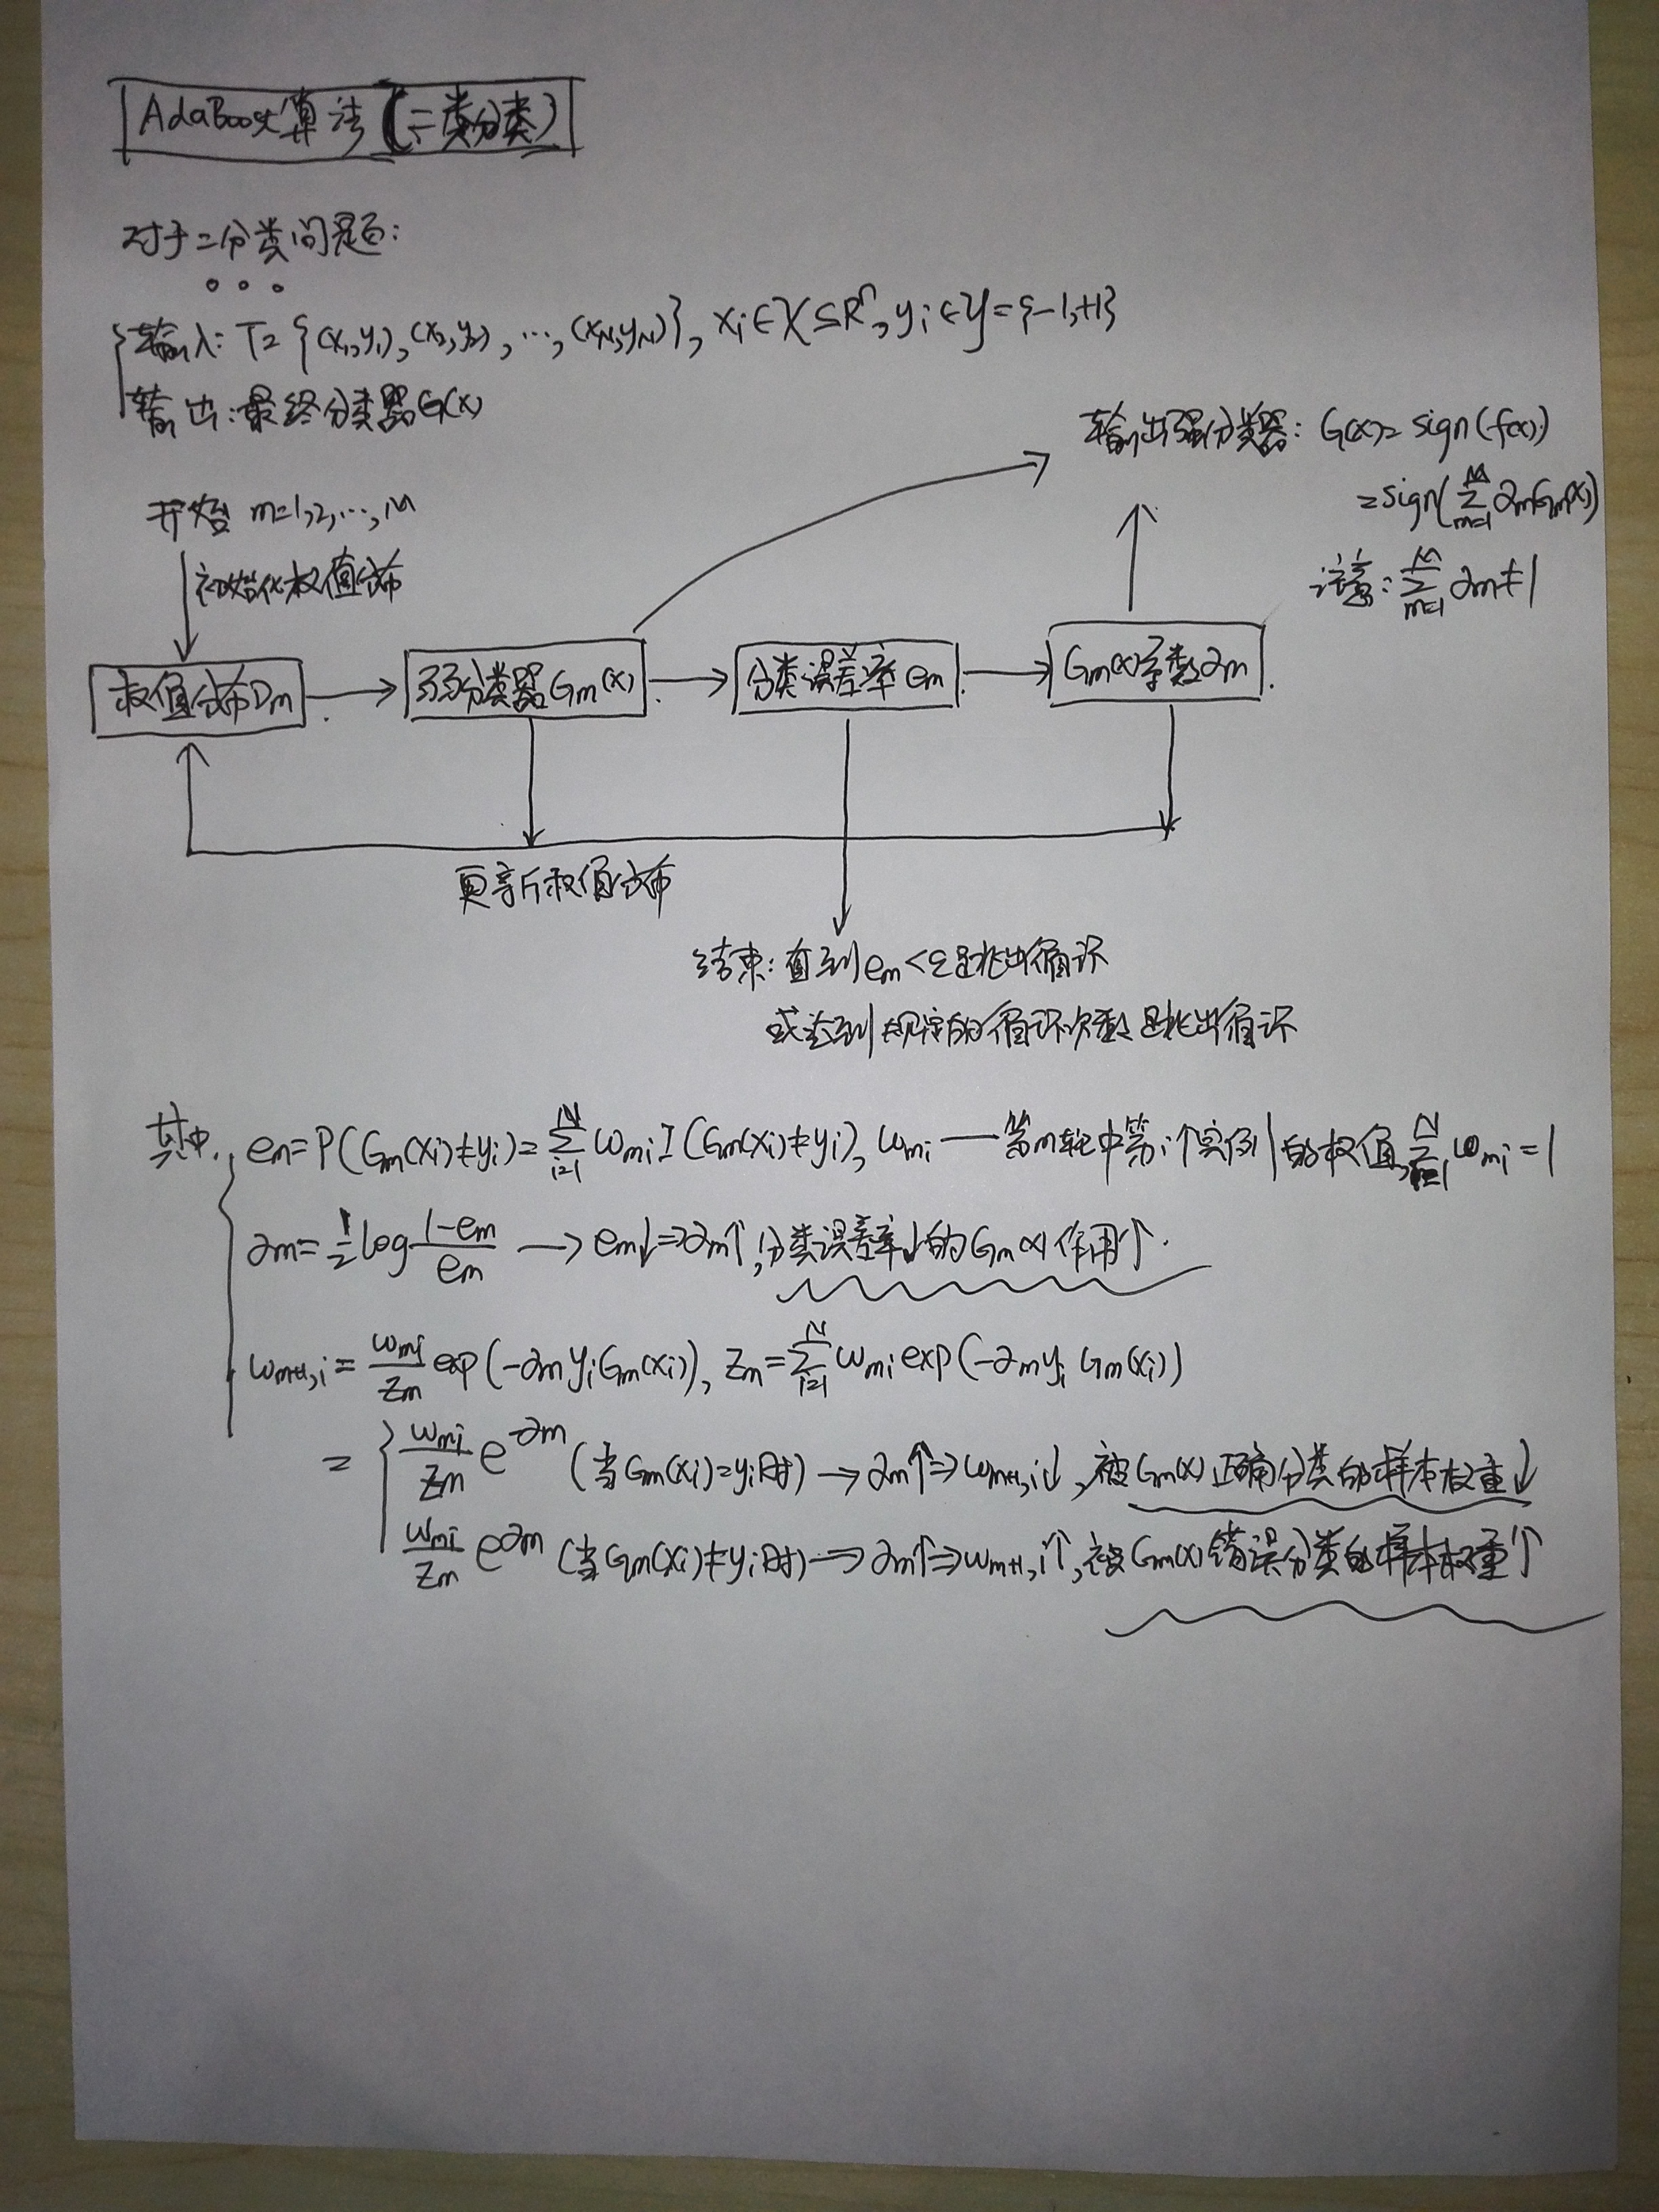 AdaBoost算法(二类分类)
对于二分类问题:
输入: T={(x₁,y₁),(x₂,y₂),…,(x_N,y_N)}, xᵢ∈X⊆Rⁿ, yᵢ∈Y={-1,+1}
输出:最终分类器G(x)
输出强分类器: G(x)=sign(f(x))
=sign(∑_{m=1}^{M} αmGm(x))
注意: ∑_{m=1}^{M} αm≠1
开始 m=1,2,…,M
初始化权值分布
权值分布Dm
弱分类器Gm(x)
分类误差率em
Gm(x)系数αm
更新权值分布
结束: 直到em<ε跳出循环
或达到规定的循环次数跳出循环
其中, em=P(Gm(xi)≠yi)=∑_{i=1}^{N} ωmi I(Gm(xi)≠yi), ωmi——第m轮中第i个实例的权值, ∑_{i=1}^{N} ωmi=1
αm=½log (1-em)/em → em↓⇒αm↑, 分类误差率↓的Gm(x)作用↑.
ωm+1,i = ωmi/Zm exp(-αm yi Gm(xi)), Zm=∑_{i=1}^{N} ωmi exp(-αm yi Gm(xi))
= { ωmi/Zm e^{-αm} (当Gm(xi)=yi时) → αm↑⇒ωm+1,i↓, 被Gm(x)正确分类的样本权重↓
ωmi/Zm e^{αm} (当Gm(xi)≠yi时) → αm↑⇒ωm+1,i↑, 被Gm(x)错误分类的样本权重↑